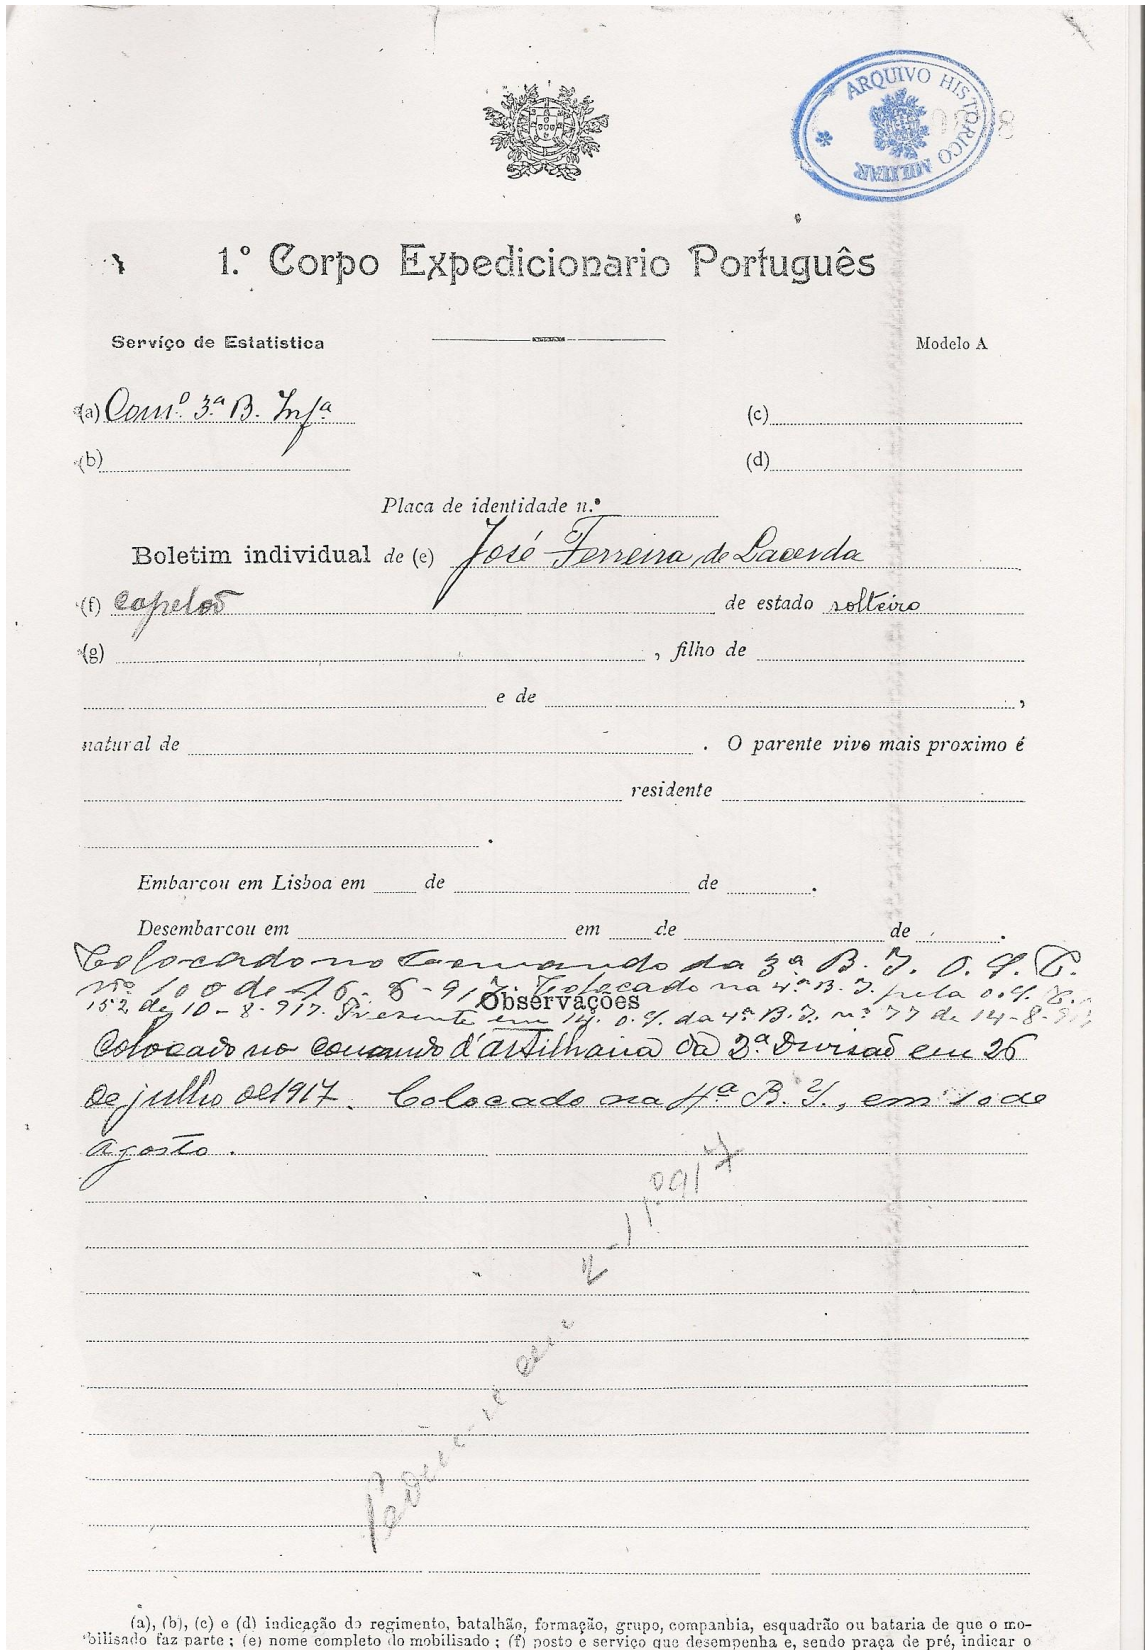 ARQUIVO HISTORICO MILITAR
1.º Corpo Expedicionario Português
Serviço de Estatistica
Modelo A
(a) Com.º 3.ª B. Inf.ª
(c)
(b)
(d)
Placa de identidade n.º
Boletim individual de (e) José Ferreira de Lacerda
(f) capelão de estado solteiro
(g) , filho de
e de ,
natural de . O parente vivo mais proximo é
residente
.
Embarcou em Lisboa em de de .
Desembarcou em em de de .
Colocado no Comando da 3ª B. I. O. S. C.
nº 100 de 16-6-917. Colocado na 4ª B. I. pela O. S. C.
Observações
152 de 10-8-917. Presente em 14. O. S. da 4ª B. I. nº 77 de 14-8-917
Colocado no comando d'artilharia da 2ª Divisão em 26
de julho de 1917. Colocado na 4ª B. I., em 10 de
agosto.
em 2-11-917
(a), (b), (c) e (d) indicação do regimento, batalhão, formação, grupo, companhia, esquadrão ou bataria de que o mo-
bilisado faz parte ; (e) nome completo do mobilisado ; (f) posto e serviço que desempenha e, sendo praça de pré, indicar o